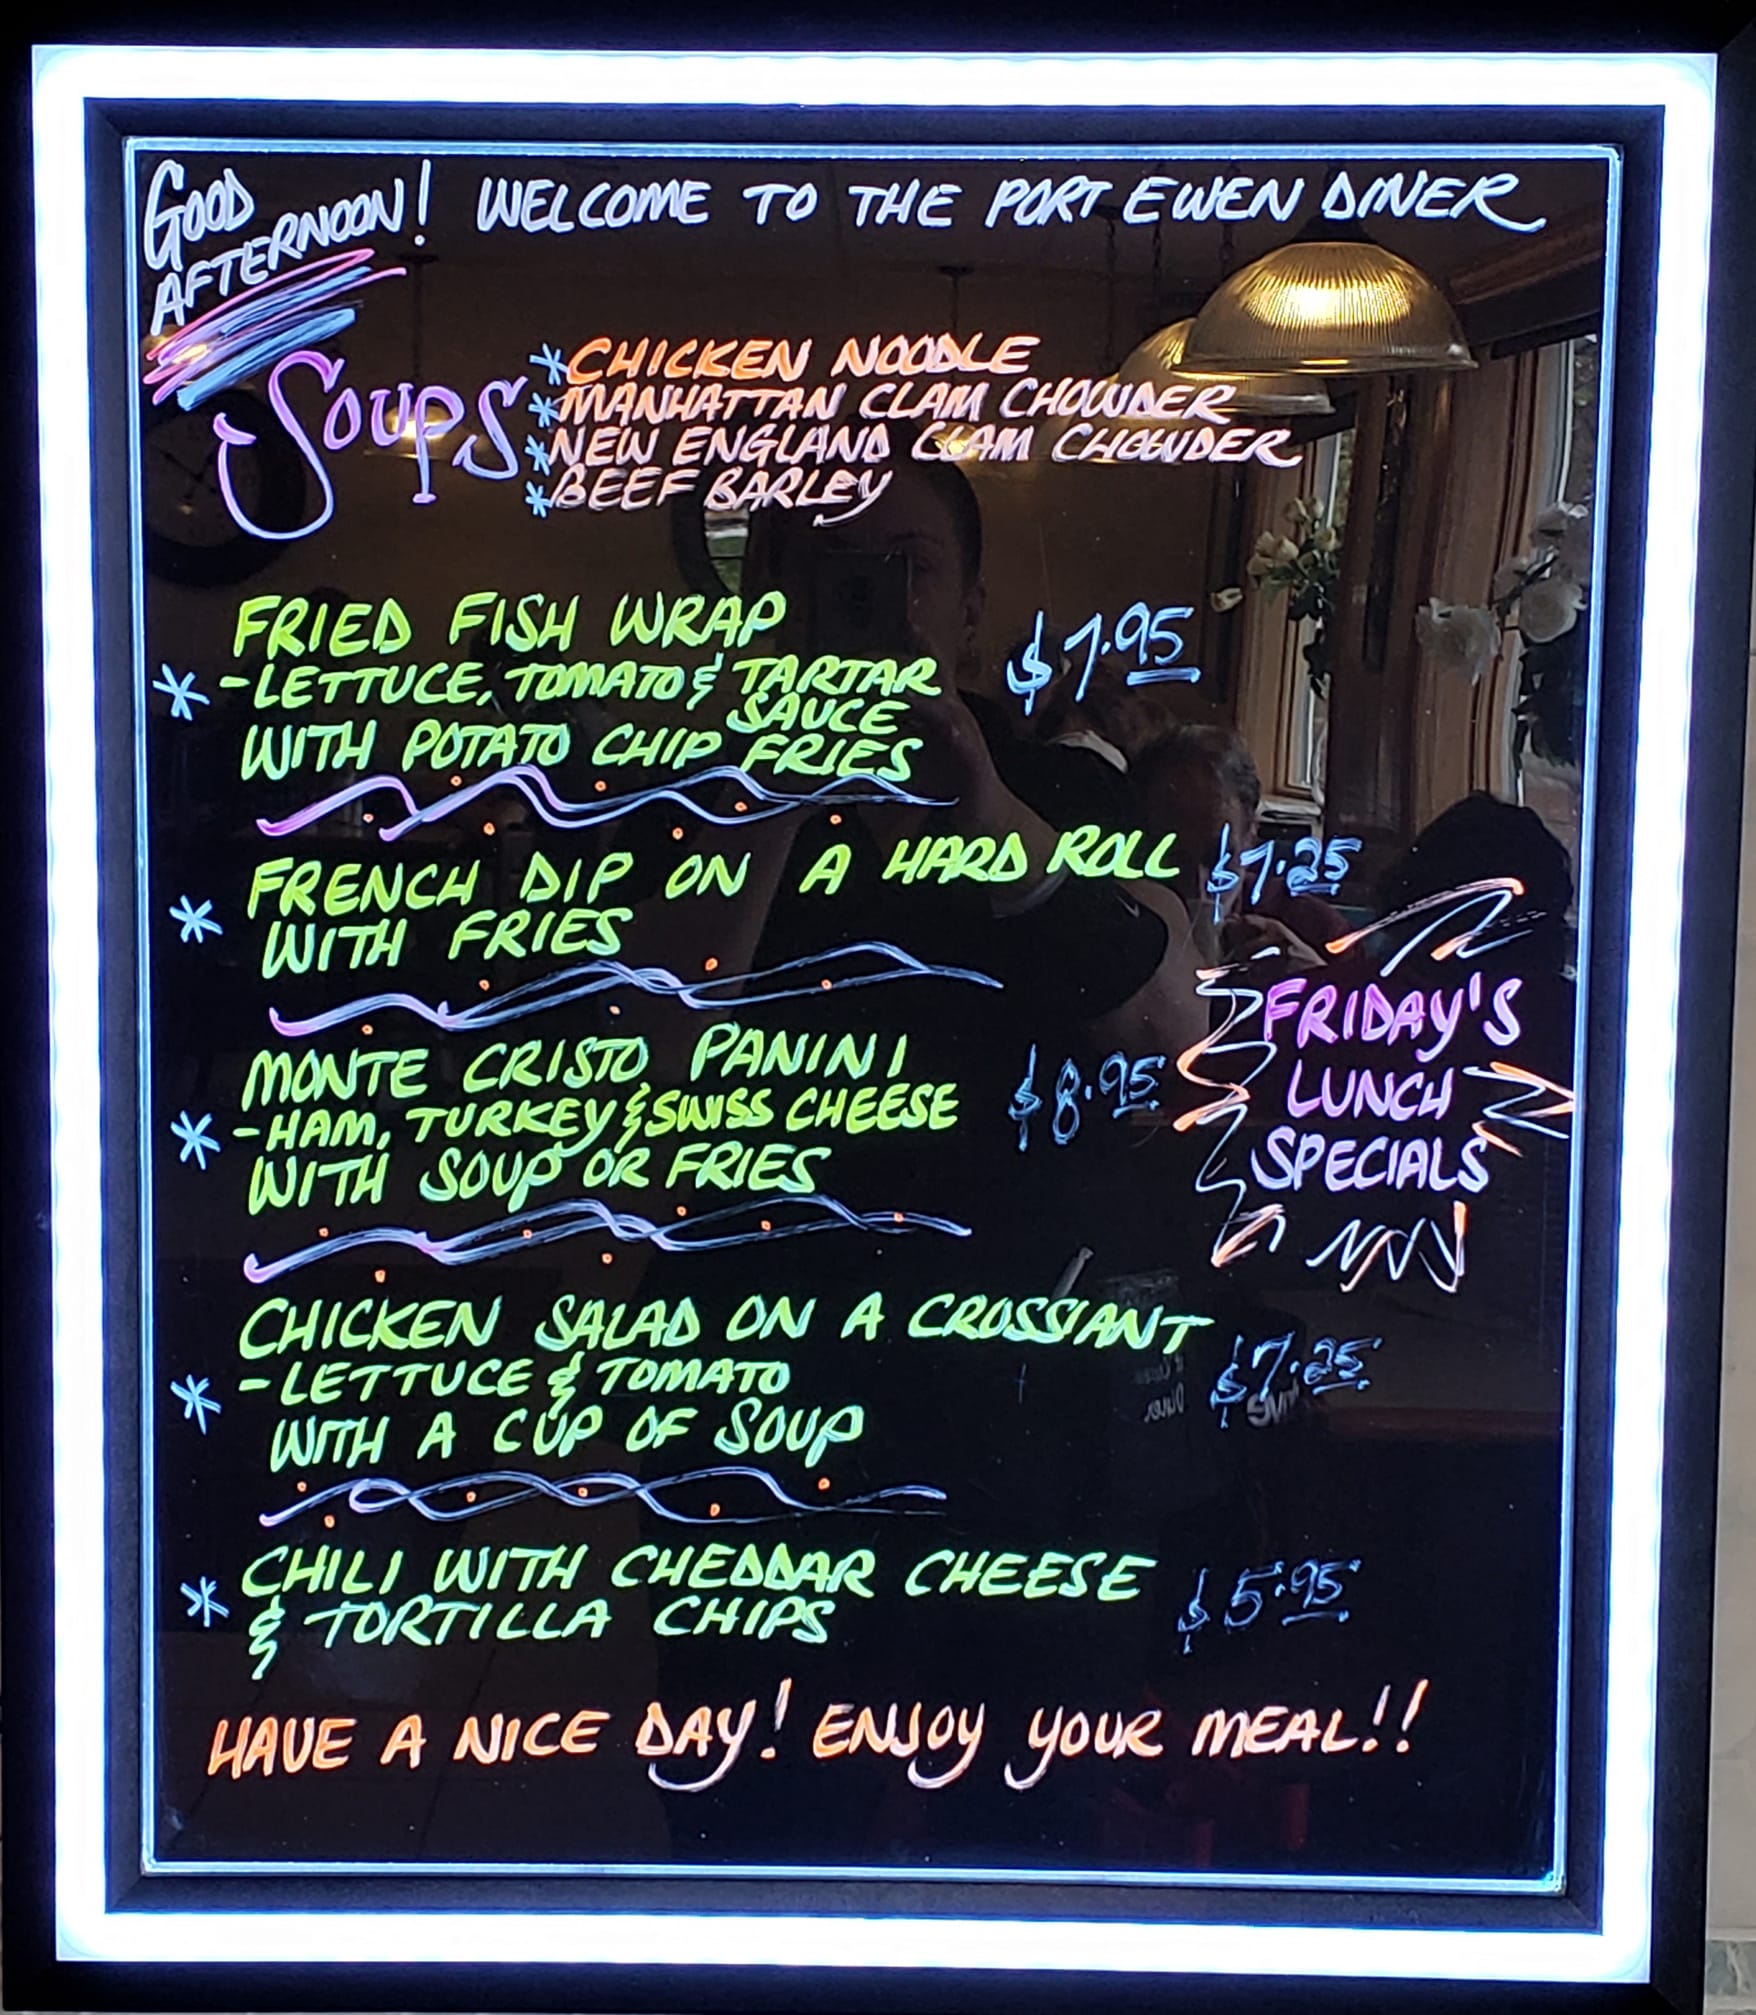 GOOD
AFTERNOON! WELCOME TO THE PORT EWEN DINER
SOUPS
*CHICKEN NOODLE
*MANHATTAN CLAM CHOWDER
*NEW ENGLAND CLAM CHOWDER
*BEEF BARLEY
FRIED FISH WRAP $7.95
* -LETTUCE, TOMATO & TARTAR
SAUCE
WITH POTATO CHIP FRIES
* FRENCH DIP ON A HARD ROLL $7.25
WITH FRIES
MONTE CRISTO PANINI $8.95
* -HAM, TURKEY & SWISS CHEESE
WITH SOUP OR FRIES
FRIDAY'S
LUNCH
SPECIALS
CHICKEN SALAD ON A CROSSIANT $7.25
* -LETTUCE & TOMATO
WITH A CUP OF SOUP
* CHILI WITH CHEDDAR CHEESE $5.95
& TORTILLA CHIPS
HAVE A NICE DAY! ENJOY YOUR MEAL!!